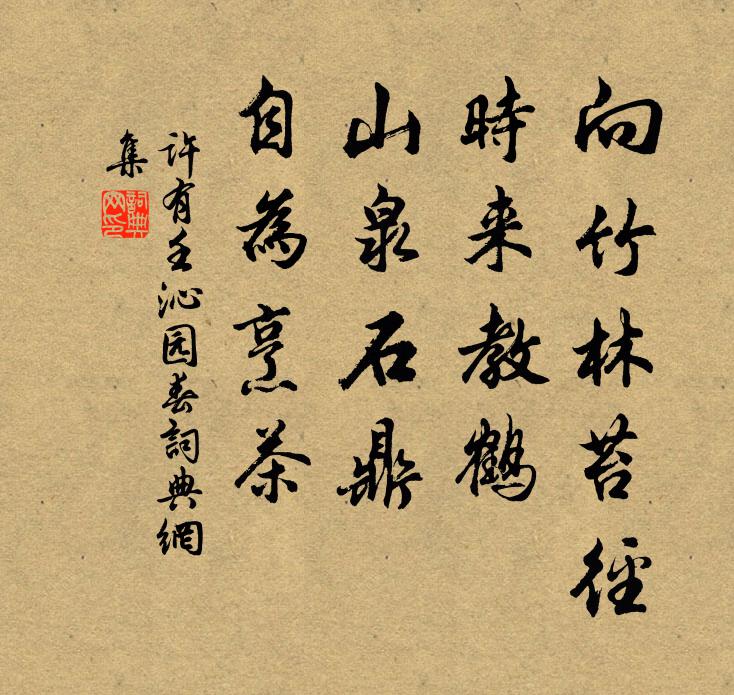 向竹林苔徑
時来教鶴
山泉石鼎
自為烹茶
許有壬沁园春詞典網
集
詞典网印